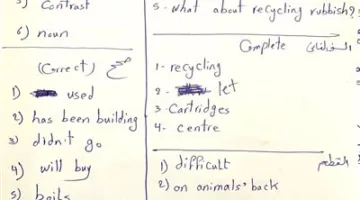 5) Contrast
6) noun
(Correct) صحح
1) used
2) has been building
3) didn't go
4) will buy
5) boils
5. What about recycling rubbish?
Complete
1- recycling
2- let
3- Cartridges
4- centre
1) difficult
2) on animals' back